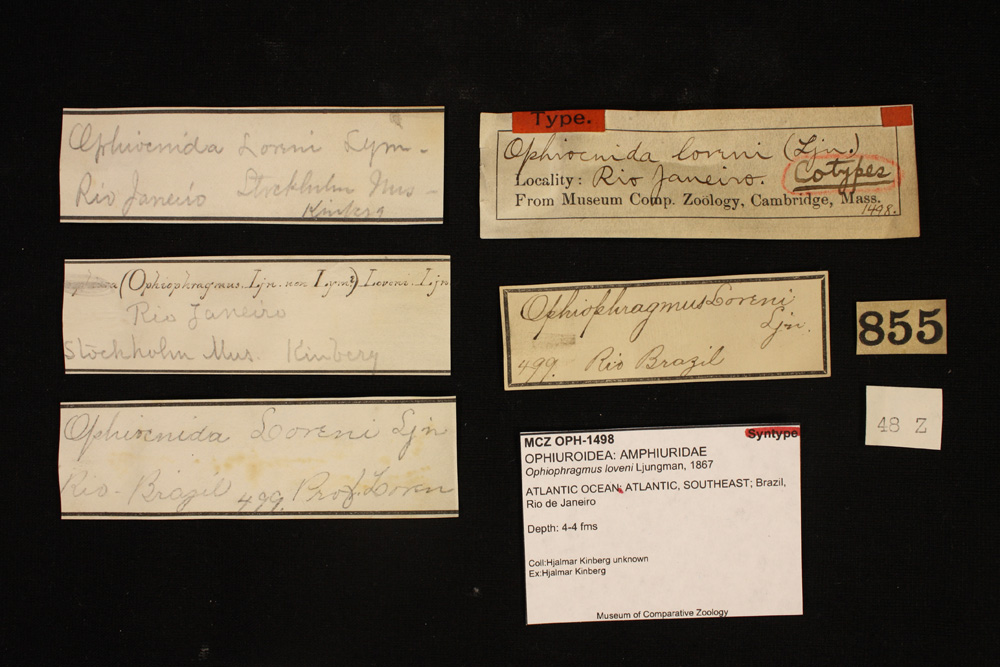 Ophiocnida Loveni Lym -
Rio Janeiro Stockholm Mus -
Kinberg
(Ophiophragmus. Ljn. non Lym.) Loveni. Ljn
Rio Janeiro
Stockholm Mus. Kinberg
Ophiocnida Loveni Ljn
Rio - Brazil 499. Prof. Loven
Type.
Ophiocnida loveni (Ljn.)
Cotypes
Locality: Rio Janeiro.
From Museum Comp. Zoölogy, Cambridge, Mass.
1498.
Ophiophragmus Loveni
Ljn.
499. Rio Brazil
855
48 Z
MCZ OPH-1498 Syntype
OPHIUROIDEA: AMPHIURIDAE
Ophiophragmus loveni Ljungman, 1867
ATLANTIC OCEAN; ATLANTIC, SOUTHEAST; Brazil,
Rio de Janeiro
Depth: 4-4 fms
Coll:Hjalmar Kinberg unknown
Ex:Hjalmar Kinberg
Museum of Comparative Zoology